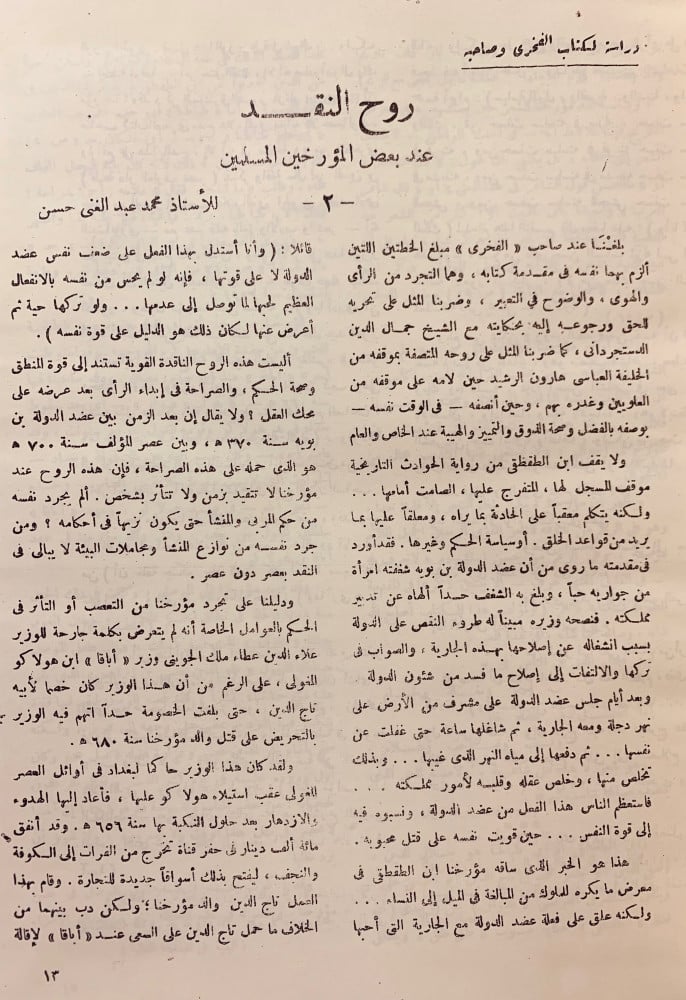 دراسة لكتاب الفخرى وصاحبه
روح النقـــد
عند بعض المؤرخين المسلمين
- ٢ -
للأستاذ محمد عبد الغنى حسن
بلغنا عند صاحب « الفخرى » مبلغ الخطتين اللتين
ألزم بهما نفسه فى مقدمة كتابه ، وهما التجرد من الرأى
والهوى ، والوضوح في التعبير ، وضربنا المثل على تحريه
للحق ورجوعه إليه بحكايته مع الشيخ جمال الدين
الدستجردانى ، كما ضربنا المثل على روحه المتصفة بموقفه من
الخليفة العباسى هارون الرشيد حين لامه على موقفه من
العلويين وغدره بهم ، وحين أنصفه — فى الوقت نفسه —
بوصفه بالفضل وصحة الذوق والتمييز والهيبة عند الخاص والعام
ولا يقف ابن الطقطقى من رواية الحوادث التاريخية
موقف المسجل لها ، المتفرج عليها ، الصامت أمامها ...
ولكنه يتكلم معقباً على الحادثة بما يراه ، ومعلقاً عليها بما
يريد من قواعد الخلق . أوسياسة الحكم وغيرها . فقد أورد
فى مقدمته ما روى من أن عضد الدولة بن بويه شغفته امرأة
من جواريه حباً ، وبلغ به الشغف حداً ألهاه عن تدبير
مملكته . فنصحه وزيره مبيناً له طروء النقص على الدولة
بسبب انشغاله عن إصلاحها بهذه الجارية ، والصواب فى
تركها والالتفات إلى إصلاح ما فسد من شئون الدولة .
وبعد أيام جلس عضد الدولة على مشرف من الأرض على
نهر دجلة ومعه الجارية ، ثم شاغلها ساعة حتى غفلت عن
نفسها ... ثم دفعها إلى مياه النهر الذى غيبها ... وبذلك
تخلص منها ، وخلص عقله وقلبه لأمور مملكته ...
فاستعظم الناس هذا الفعل من عضد الدولة ، ونسبوه فيه
إلى قوة النفس ... حين قويت نفسه على قتل محبوبه .
هذا هو الخبر الذى ساقه مؤرخنا ابن الطقطقى فى
معرض ما يكره للملوك من المبالغة فى الميل إلى النساء ...
ولكنه علق على فعلة عضد الدولة مع الجارية التى أحبها
قائلا : ( وأنا أستدل بهذا الفعل على ضعف نفس عضد
الدولة لا على قوتها ، فإنه لو لم يحس من نفسه بالانفعال
العظيم لحبها لما توصل إلى عدمها ... ولو تركها حية ثم
أعرض عنها لكان ذلك هو الدليل على قوة نفسه ) .
أليست هذه الروح الناقدة القوية تستند إلى قوة المنطق
وصحة الحكم ، والصراحة فى إبداء الرأى بعد عرضه على
محك العقل ؟ ولا يقال إن بعد الزمن بين عضد الدولة بن
بويه سنة ٣٧٠ هـ ، وبين عصر المؤلف سنة ٧٠٠ هـ
هو الذى حمله على هذه الصراحة ، فإن هذه الروح عند
مؤرخنا لا تتقيد بزمن ولا تتأثر بشخص . ألم يجرد نفسه
من حكم المربى والمنشأ حتى يكون نزيهاً فى أحكامه ؟ ومن
جرد نفسه من نوازع المنشأ ومجاملات البيئة لا يبالى فى
النقد بعصر دون عصر .
ودليلنا على تجرد مؤرخنا من التعصب أو التأثر فى
الحكم بالعوامل الخاصة أنه لم يتعرض بكلمة جارحة للوزير
علاء الدين عطاء ملك الجوينى وزير « أباقا » ابن هولا كو
المغولى ، على الرغم من أن هذا الوزير كان خصما لأبيه
تاج الدين ، حتى بلغت الخصومة حداً اتهم فيه الوزير
بالتحريض على قتل والد مؤرخنا سنة ٦٨٠ هـ .
ولقد كان هذا الوزير حاكما لبغداد فى أوائل العصر
المغولى عقب استيلاء هولا كو عليها ، فأعاد إليها الهدوء
والازدهار بعد حلول النكبة بها سنة ٦٥٦ هـ . وقد أنفق
مائة ألف دينار فى حفر قناة تخرج من الفرات إلى الكوفة
والنجف ، ليفتح بذلك أسواقاً جديدة للتجارة . وقام بهذا
العمل تاج الدين والد مؤرخنا ؛ ولكن دب بينهما من
الخلاف ما حمل تاج الدين على السعى عند « أباقا » لإقالة
١٣